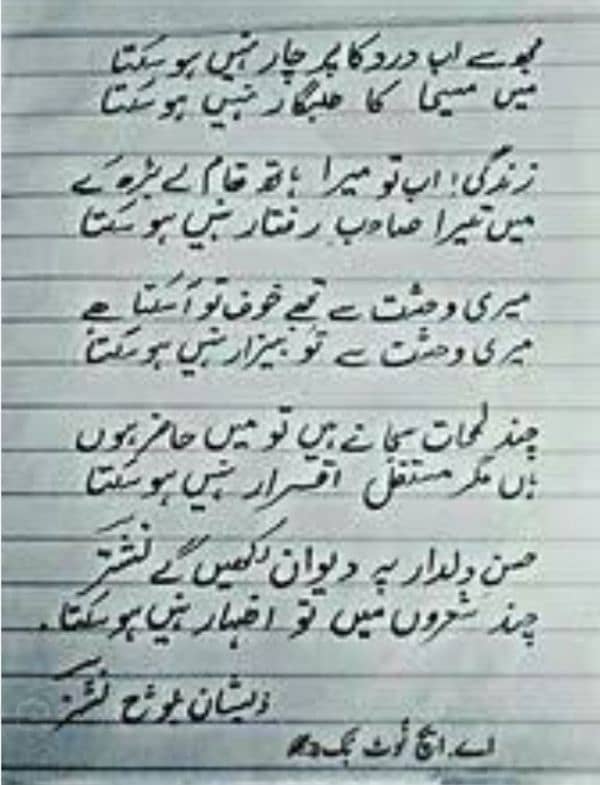 مجھ سے اب درد کا پرچار نہیں ہو سکتا
میں مسیحا کا طلبگار نہیں ہو سکتا
زندگی! اب تو میرا ہاتھ تھام لے بڑھ کے
میں تیرا صاحبِ رفتار نہیں ہو سکتا
میری وحشت سے تجھے خوف تو آ سکتا ہے
میری وحشت سے تو بیزار نہیں ہو سکتا
چند لمحات سجانے ہیں تو میں حاضر ہوں
ہاں مگر مستقل اقرار نہیں ہو سکتا
حسنِ دلدار پہ دیوان لکھیں گے نشتر
چند شعروں میں تو اظہار نہیں ہو سکتا۔
ذیشان بلوچ نشتر
اے۔ایچ نوٹ بک